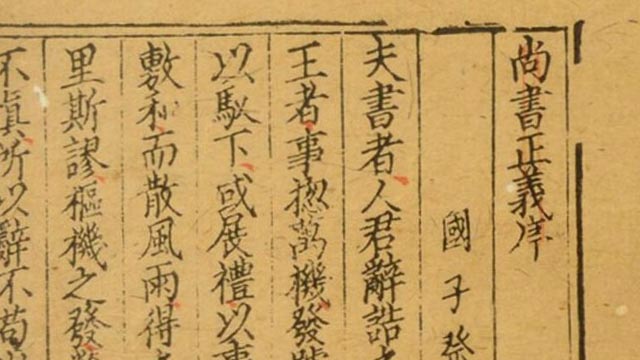 尚書正義序
國子祭
夫書者人君辭誥之
王者事揔萬機發號
以馭下或展禮以事
敷和而散風雨得之
里斯謬樞機之發榮
不眞所以辭不苟出